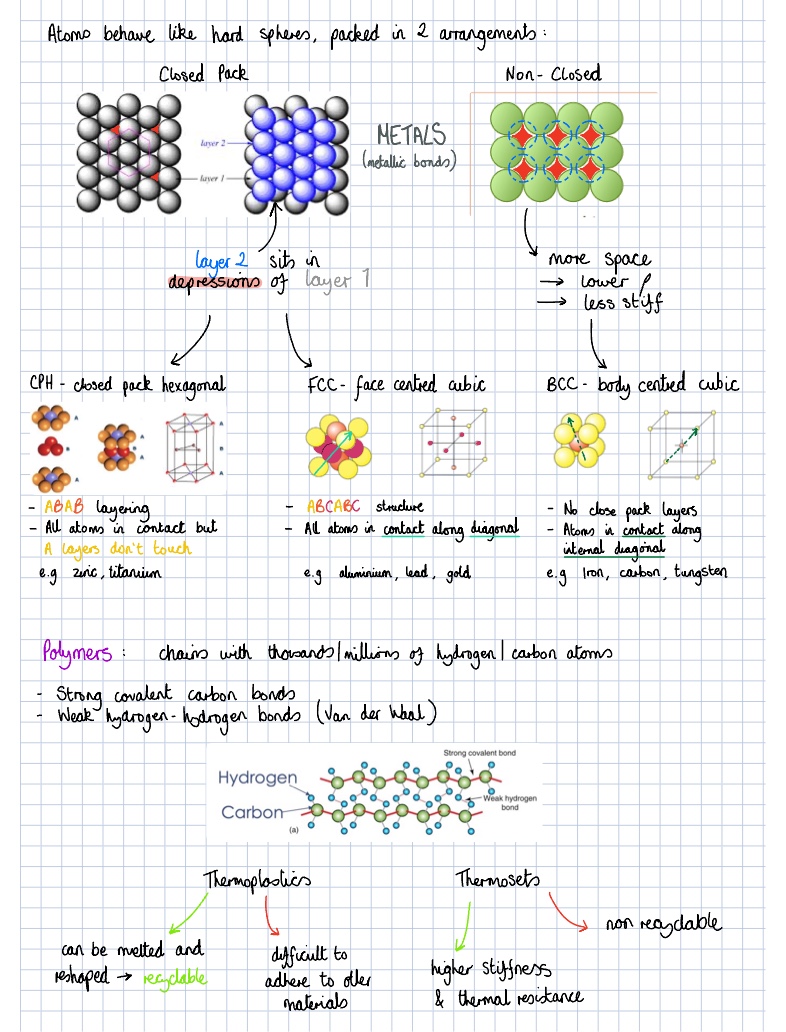 Atoms behave like hard spheres, packed in 2 arrangements:
Closed Pack
Non-Closed
METALS
(metallic bonds)
layer 2
layer 1
layer 2 sits in
depressions of layer 1
more space
→ lower ρ
→ less stiff
CPH - closed pack hexagonal
FCC - face centred cubic
BCC - body centred cubic
A
B
A
A
B
A
A
B
A
- ABAB layering
- All atoms in contact but
A layers don't touch
e.g zinc, titanium
- ABCABC structure
- All atoms in contact along diagonal
e.g aluminium, lead, gold
- No close pack layers
- Atoms in contact along
internal diagonal
e.g Iron, carbon, tungsten
Polymers: chains with thousands/millions of hydrogen/carbon atoms
- Strong covalent carbon bonds
- Weak hydrogen-hydrogen bonds (Van der Waal)
Strong covalent bond
Hydrogen
Carbon
Weak hydrogen
bond
(a)
Thermoplastics
can be melted and
reshaped → recyclable
difficult to
adhere to other
materials
Thermosets
higher stiffness
& thermal resistance
non recyclable